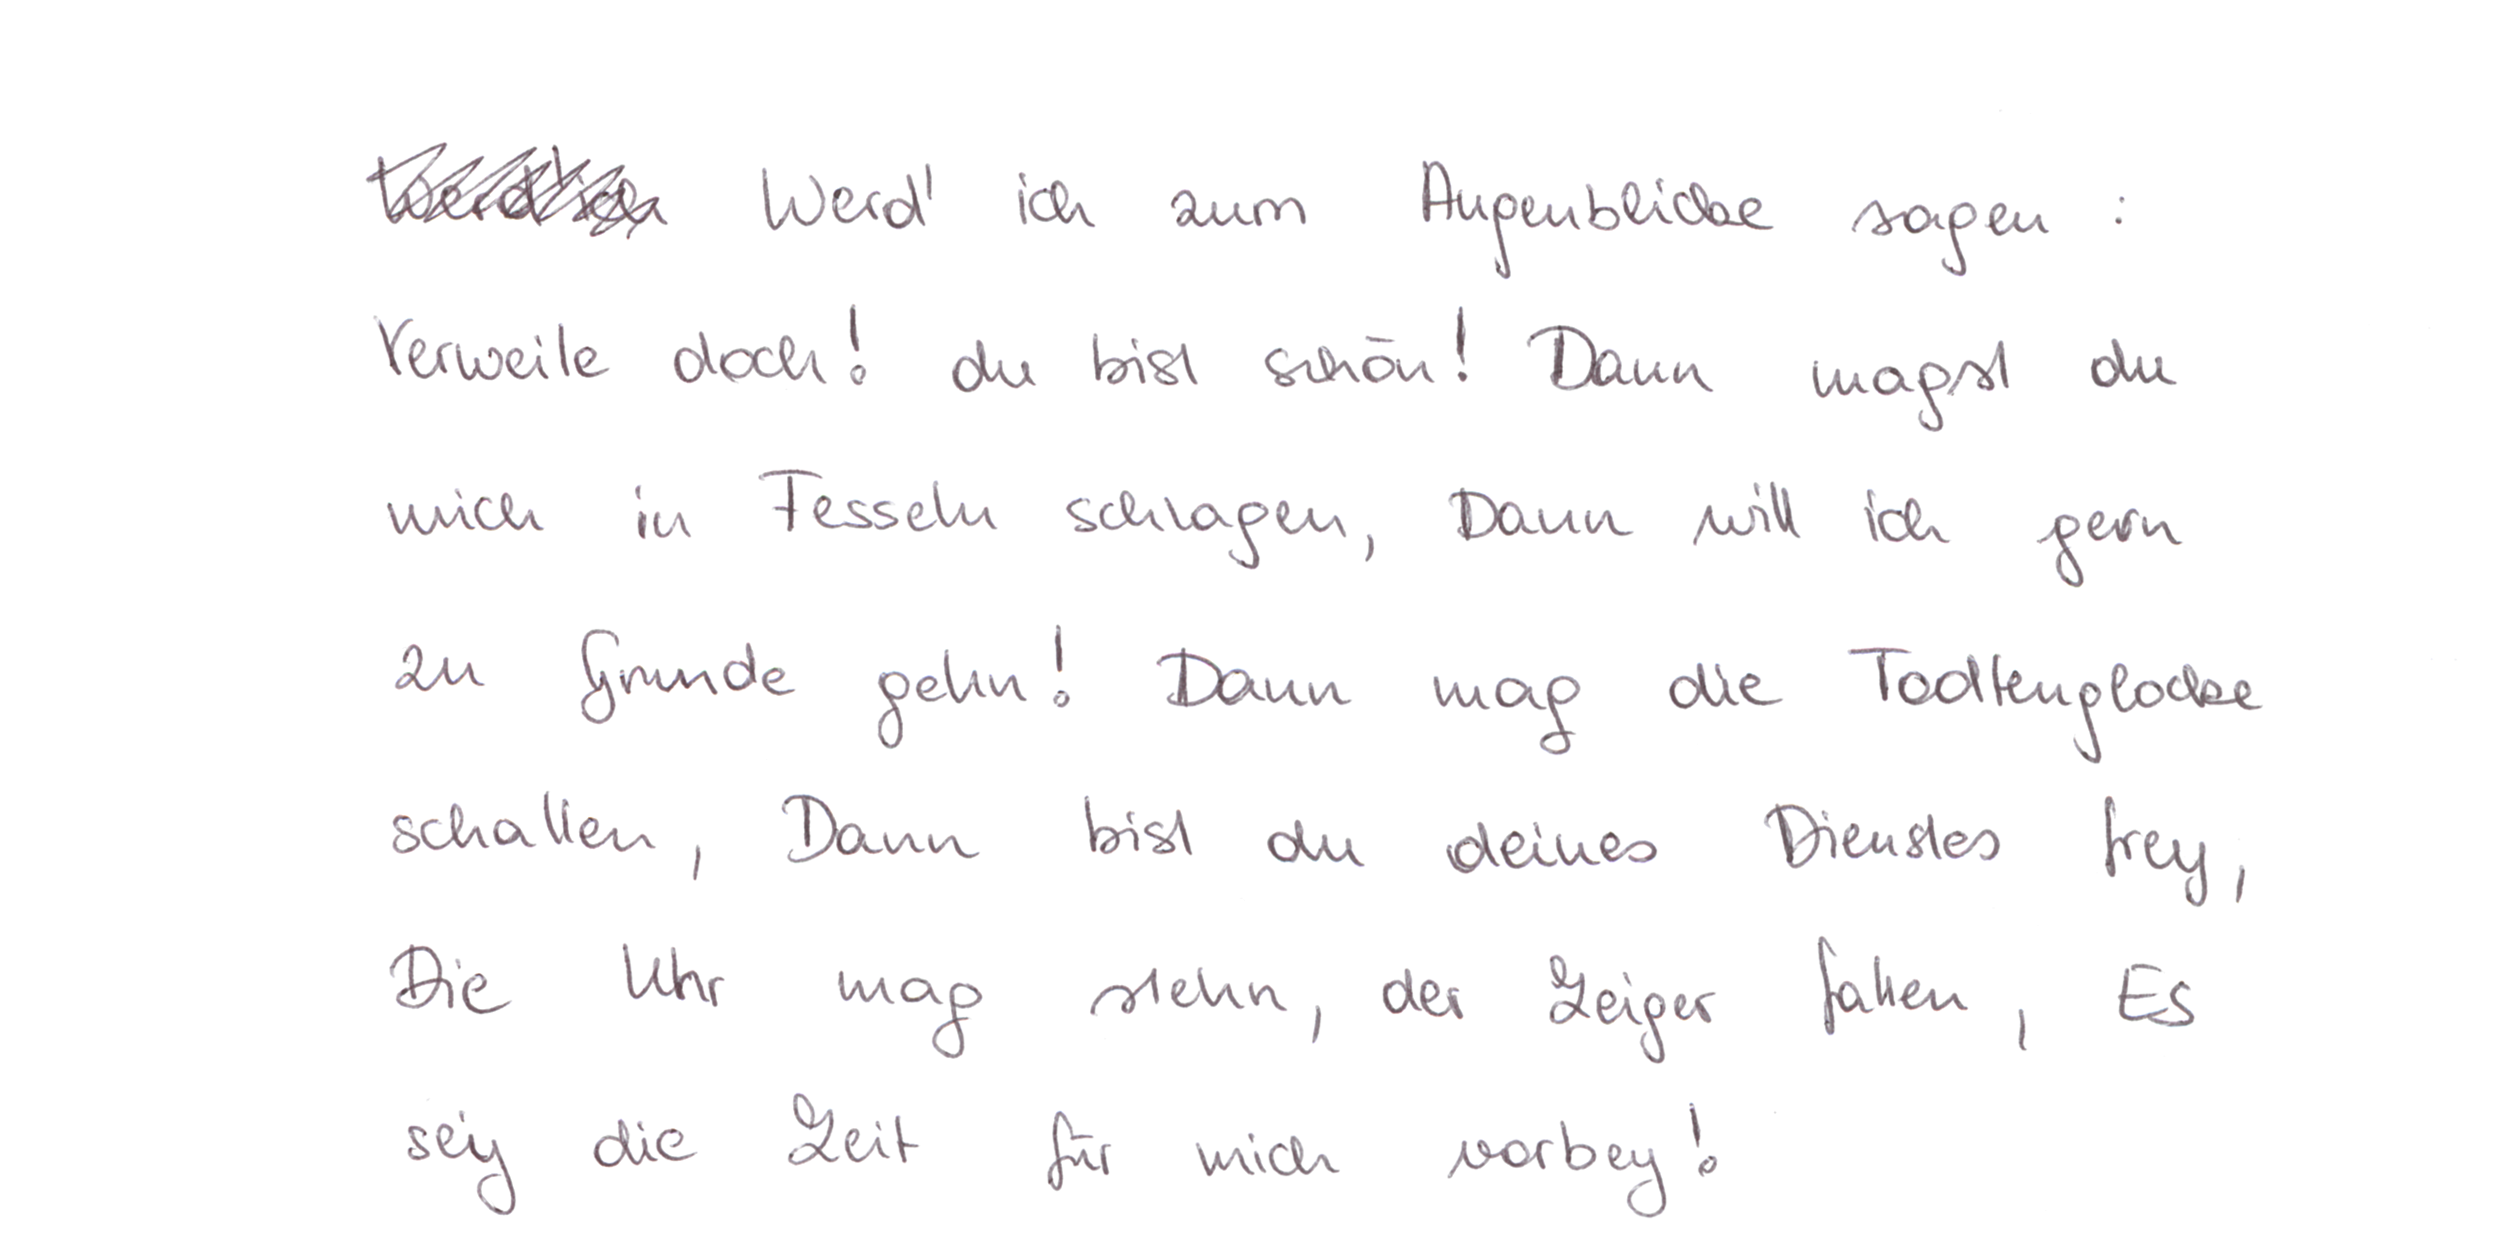 Werd' ich zum Augenblicke sagen :
Verweile doch! du bist schön! Dann magst du
mich in Fesseln schlagen, Dann will ich gern
zu Grunde gehn! Dann mag die Todtenglocke
schallen, Dann bist du deines Dienstes frey,
Die Uhr mag stehn, der Zeiger fallen, Es
seiy die Zeit für mich vorbey!